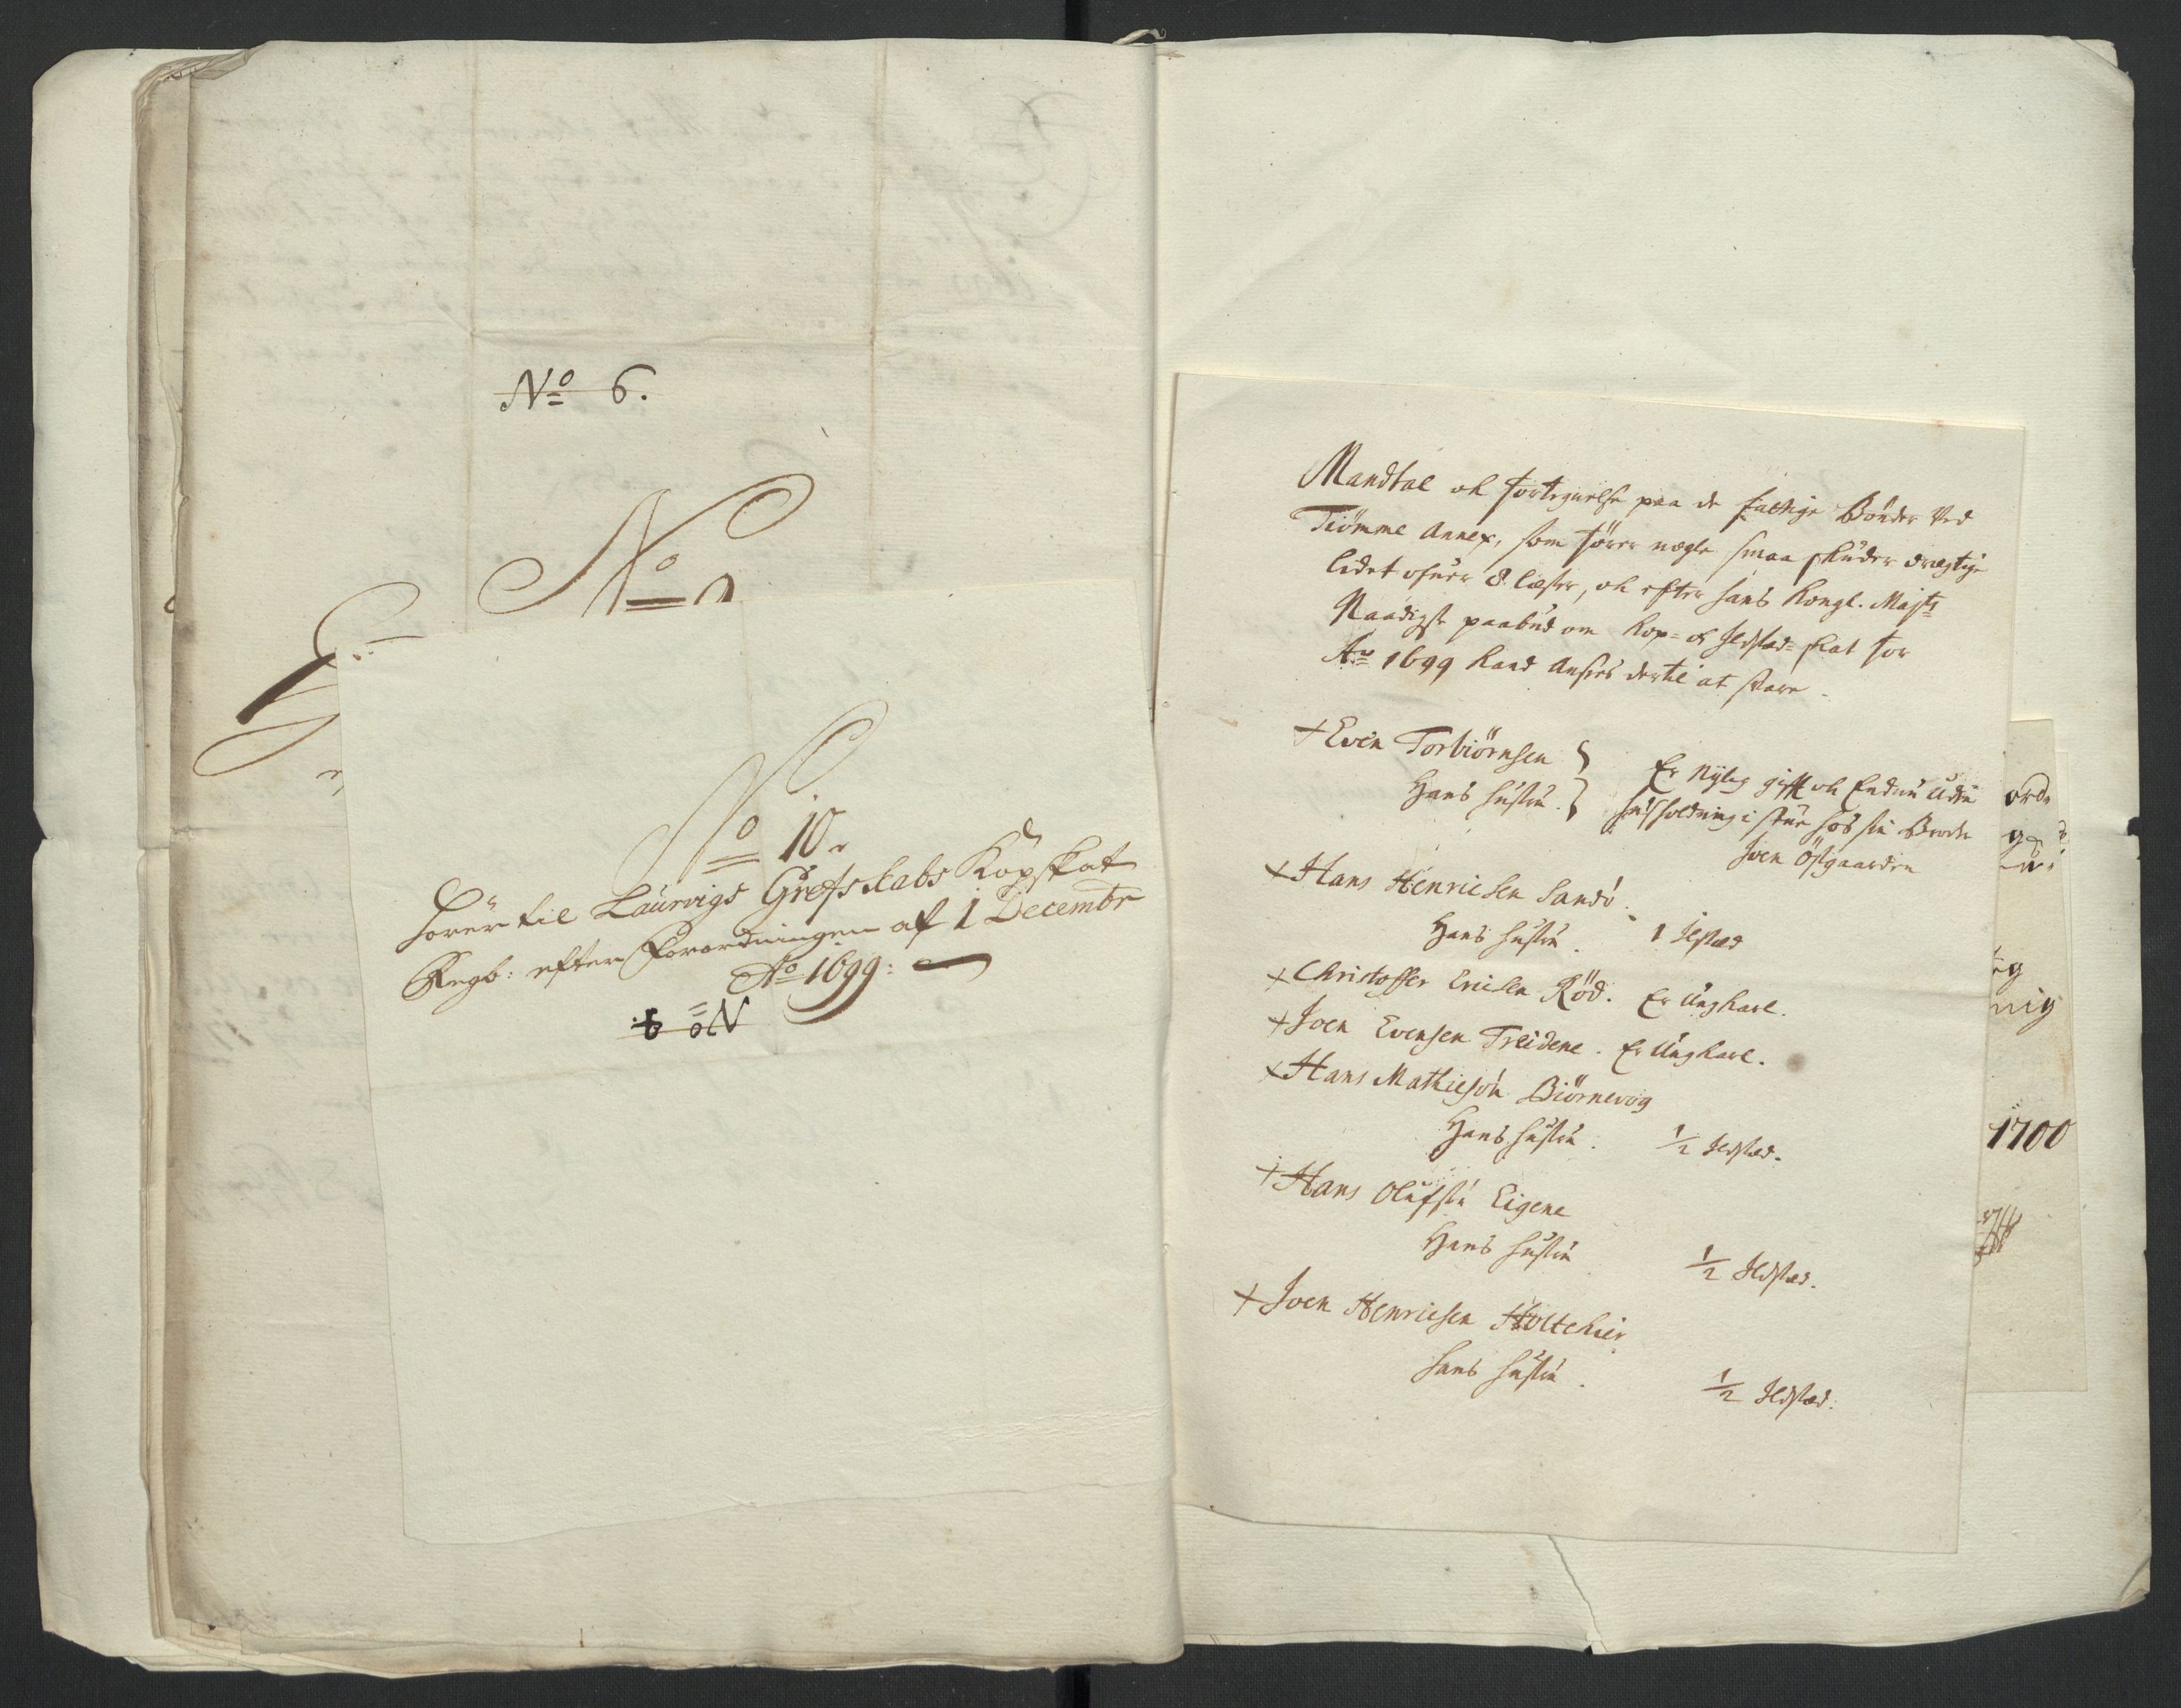 No 6.
No
No 10.
Hörer til Laurvigs Grefskabs Kopskat
Regb: efter Forordningen af 1 Decembr
Ao 1699:
No
Mandtal ok fortegnelse paa de fattige Bönder Ved
Tiömme Annex, som förer nogle smaa skuder drægtige
lidet ofuer 8 læster, ok efter hans Kongl. Majts
Naadigste paabud om Kop- ok Ildsted-skat for
Ao 1699 kand ansees dertil at svare.
+ Even Torbiörnsen } Er nylig gifft ok Endnu uden
Hans hustru. } huusholdning i stue hos sin Broder
Iven Östgaarden
+ Hans Henricsen Sandö.
Hans hustru. 1 Ilsted
+ Christoffer Ericsen Röd. Er Ungkarl.
+ Joen Evensen Treidene. Er Ungkarl.
+ Hans Mathiesön Biörnevog
Hans hustru. 1/2 Ildsted.
+ Hans Olufsen Eigene
Hans hustru 1/2 Ildsted.
+ Joen Henricsen Holtekier
hans hustru. 1/2 Ildsted.
1700